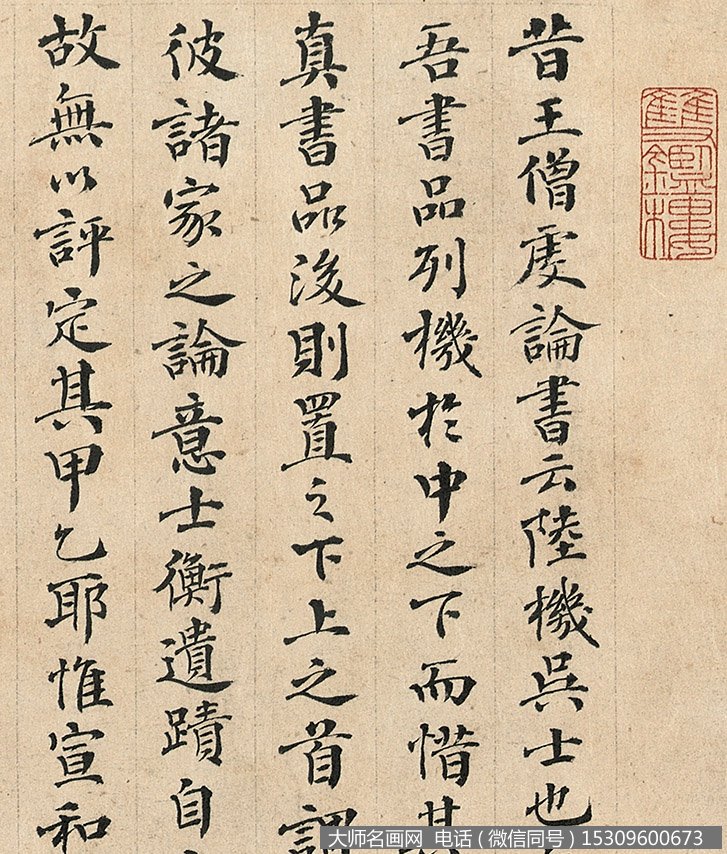 昔王僧虔論書云陸機吳士也
吾書品列機於中之下而惜其
真書品後則置之下上之首謂
彼諸家之論意士衡遺蹟自
故無以評定其甲乙耶惟宣和
大师名画网 电话（微信同号）15309600673